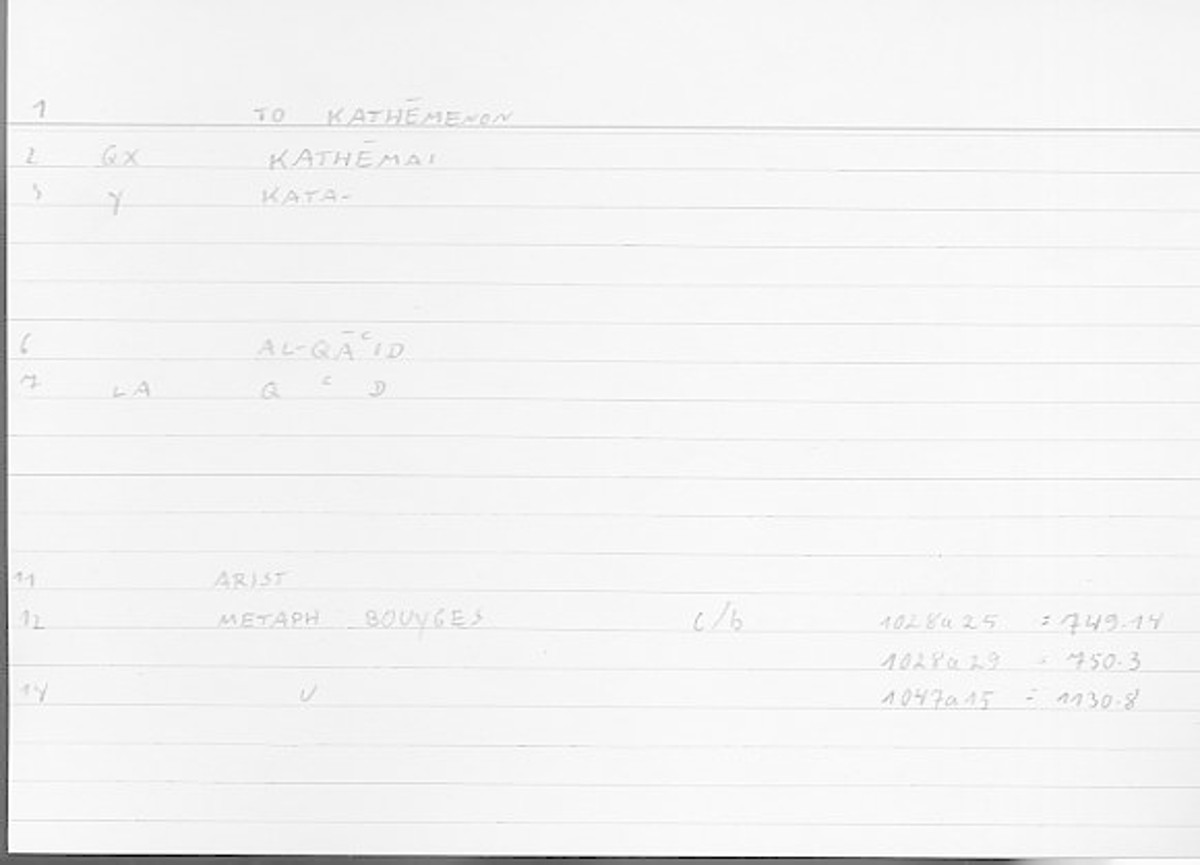 1 TO KATHĒMENON
2 QX KATHĒMAI
3 Y KATA-
6 AL-QĀʿID
7 LA Q ʿ D
11 ARIST
12 METAPH BOUYGES c/b 1028a25 = 749.14
1028a29 = 750.3
14 U 1047a15 = 1130.8